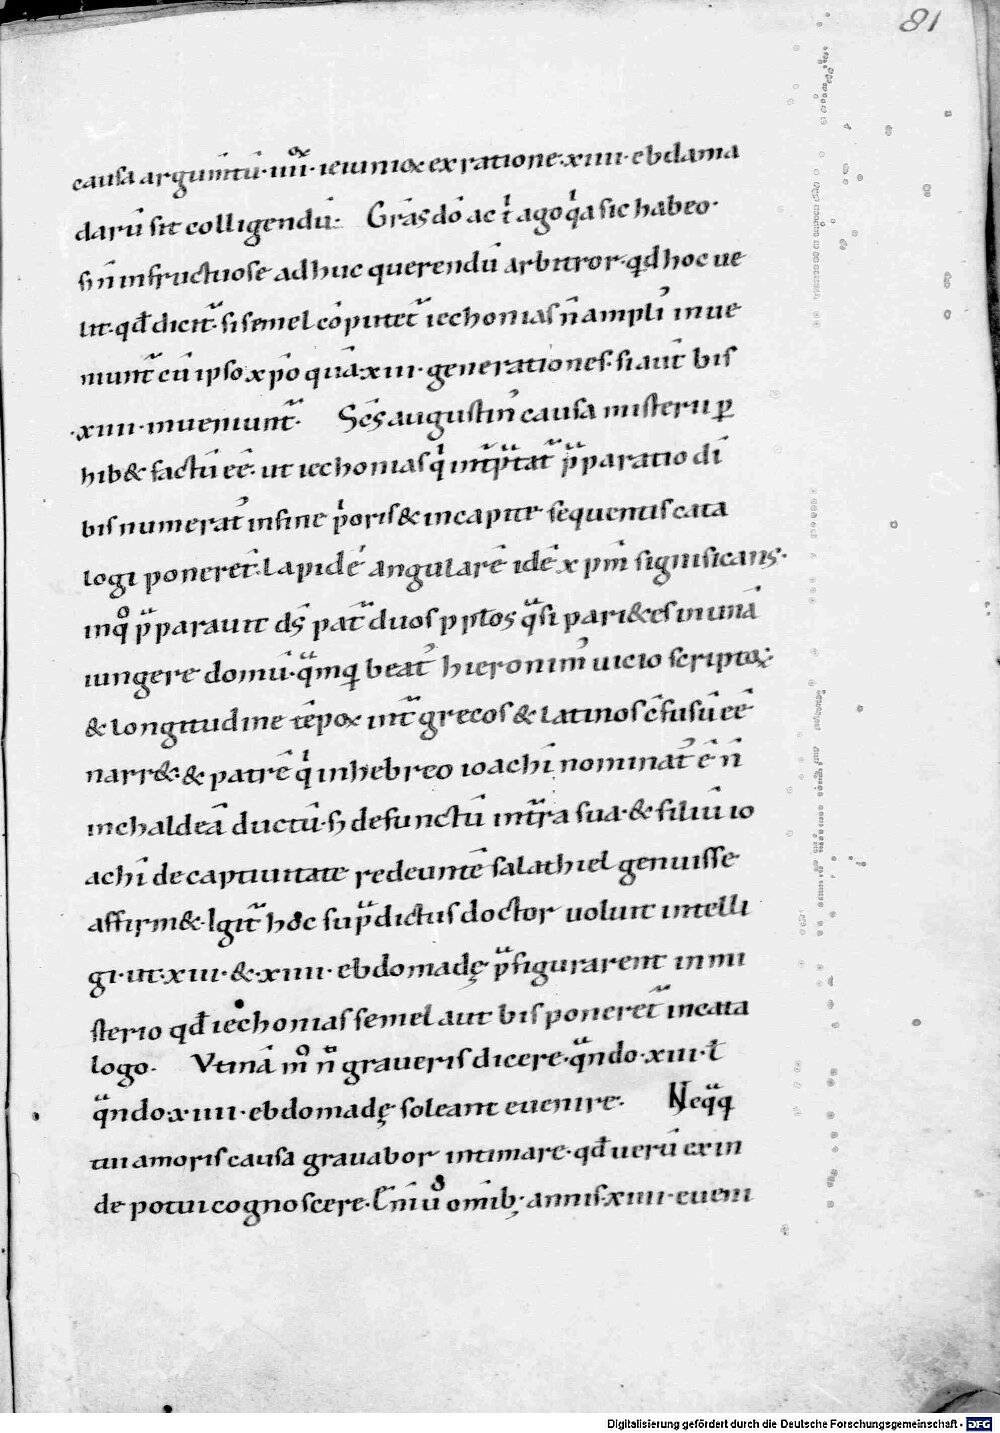 81
causa argum̄tū·iiiiox·ieiuniox ex ratione·xiiii·ebdama
darū sit colligendū: Grās dō ac t̄ ago q̄a sic habeo·
sꝫ n̄ infructuose adhuc querendū arbitror·qđ hoc ue
lit·qđ dicit᷑·si semel cōputet᷑ iechonias n̄ ampli᾽ inue
niunt᷑ cū ipso xp̄o quā·xiii·generationes·si aut̄ bis
·xiiii·inueniunt᷑· Sc̄s augustin᾽ causa misterii ꝑ
hib& factū eē·ut iechonias q̄ int̄p̄tat᷑ p̄paratio dī
bis numerat᾽ in fine p̄oris & in capite sequentis cata
logi poneret᷑·lapidē angularē idē xp̄m significans·
in qͦ p̄parauit ds̄ pat᷑ duos pplos q̄si pari&es in unā
iungere domū·q̄mqꝫ beat᾽ hieronim᾽ uicio scriptox·
& longitudine tēpox int᷑ grecos & latinos c̄fusū eē
narr&·& patrē q̄ in hebreo ioachī nominat᾽ ē n̄
in chaldeā ductū·sꝫ defunctū in t᷑ra sua·& filiū io
achī de captiuitate redeuntē salathiel genuisse
affirm&·Igit᷑ hoc sup̄dictus doctor uoluit intelli
gi·ut·xiii·&·xiiii·ebdomadę p̄figurarent in mi
sterio qđ iechonias semel aut bis poneret᷑ in cata
logo· Vtinā mͦ n̄ graueris dicere·q̄ndo·xiii·ł
q̄ndo·xiiii·ebdomadę soleant euenire· Neq̄q̄
tui amoris causa grauabor intimare·qđ uerū exin
de potui cognoscere· om̄ib; annis·xiiii·eueni
Digitalisierung gefördert durch die Deutsche Forschungsgemeinschaft - DFG